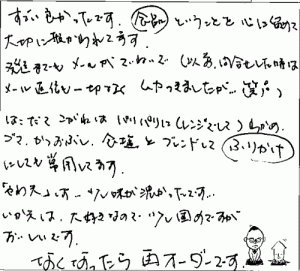 すごい良かったです。 ということを心に留めて
大切に使われてます。
発送までも メールがていねいで（以前、問合せした時は
メール返信も一切なく ムカつきましたが…（笑））
はこだて こがねは パリパリに（レンジでして） わかめ、
ゴマ、かつおぶし、食塩とブレンドして ふりかけ
にしても 重用してます。
「やわえ」は… 少し味が濃かったです…
いかえは、大好きなので 少し固めですが
おいしいです。
なくなったら 再オーダーです。